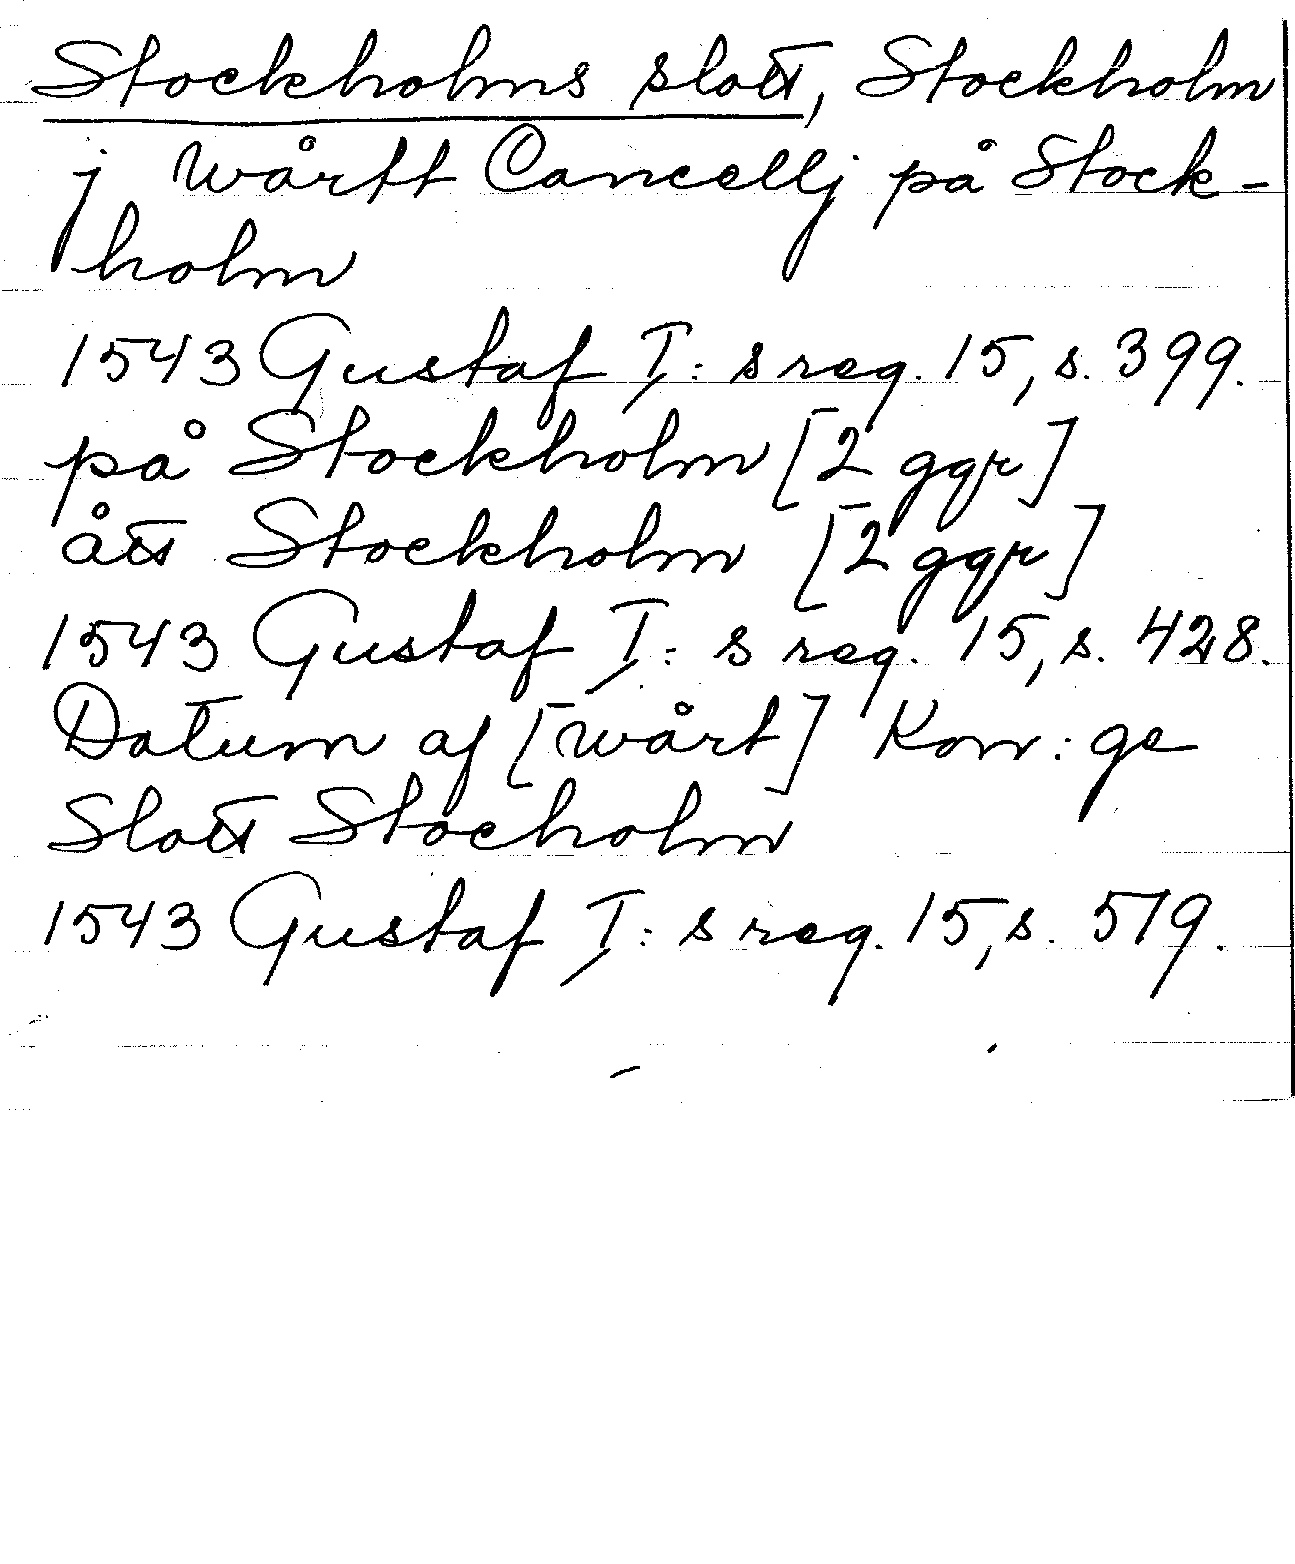 Stockholms slott, Stockholm
j wårtt Cancellj på Stock-
holm
1543 Gustaf I:s reg. 15, s. 399.
på Stockholm [2 ggr]
ått Stockholm [2 ggr]
1543 Gustaf I:s reg. 15, s. 428.
Datum af [wårt] Kon:ge
Slott Stocholm
1543 Gustaf I:s reg. 15, s. 519.